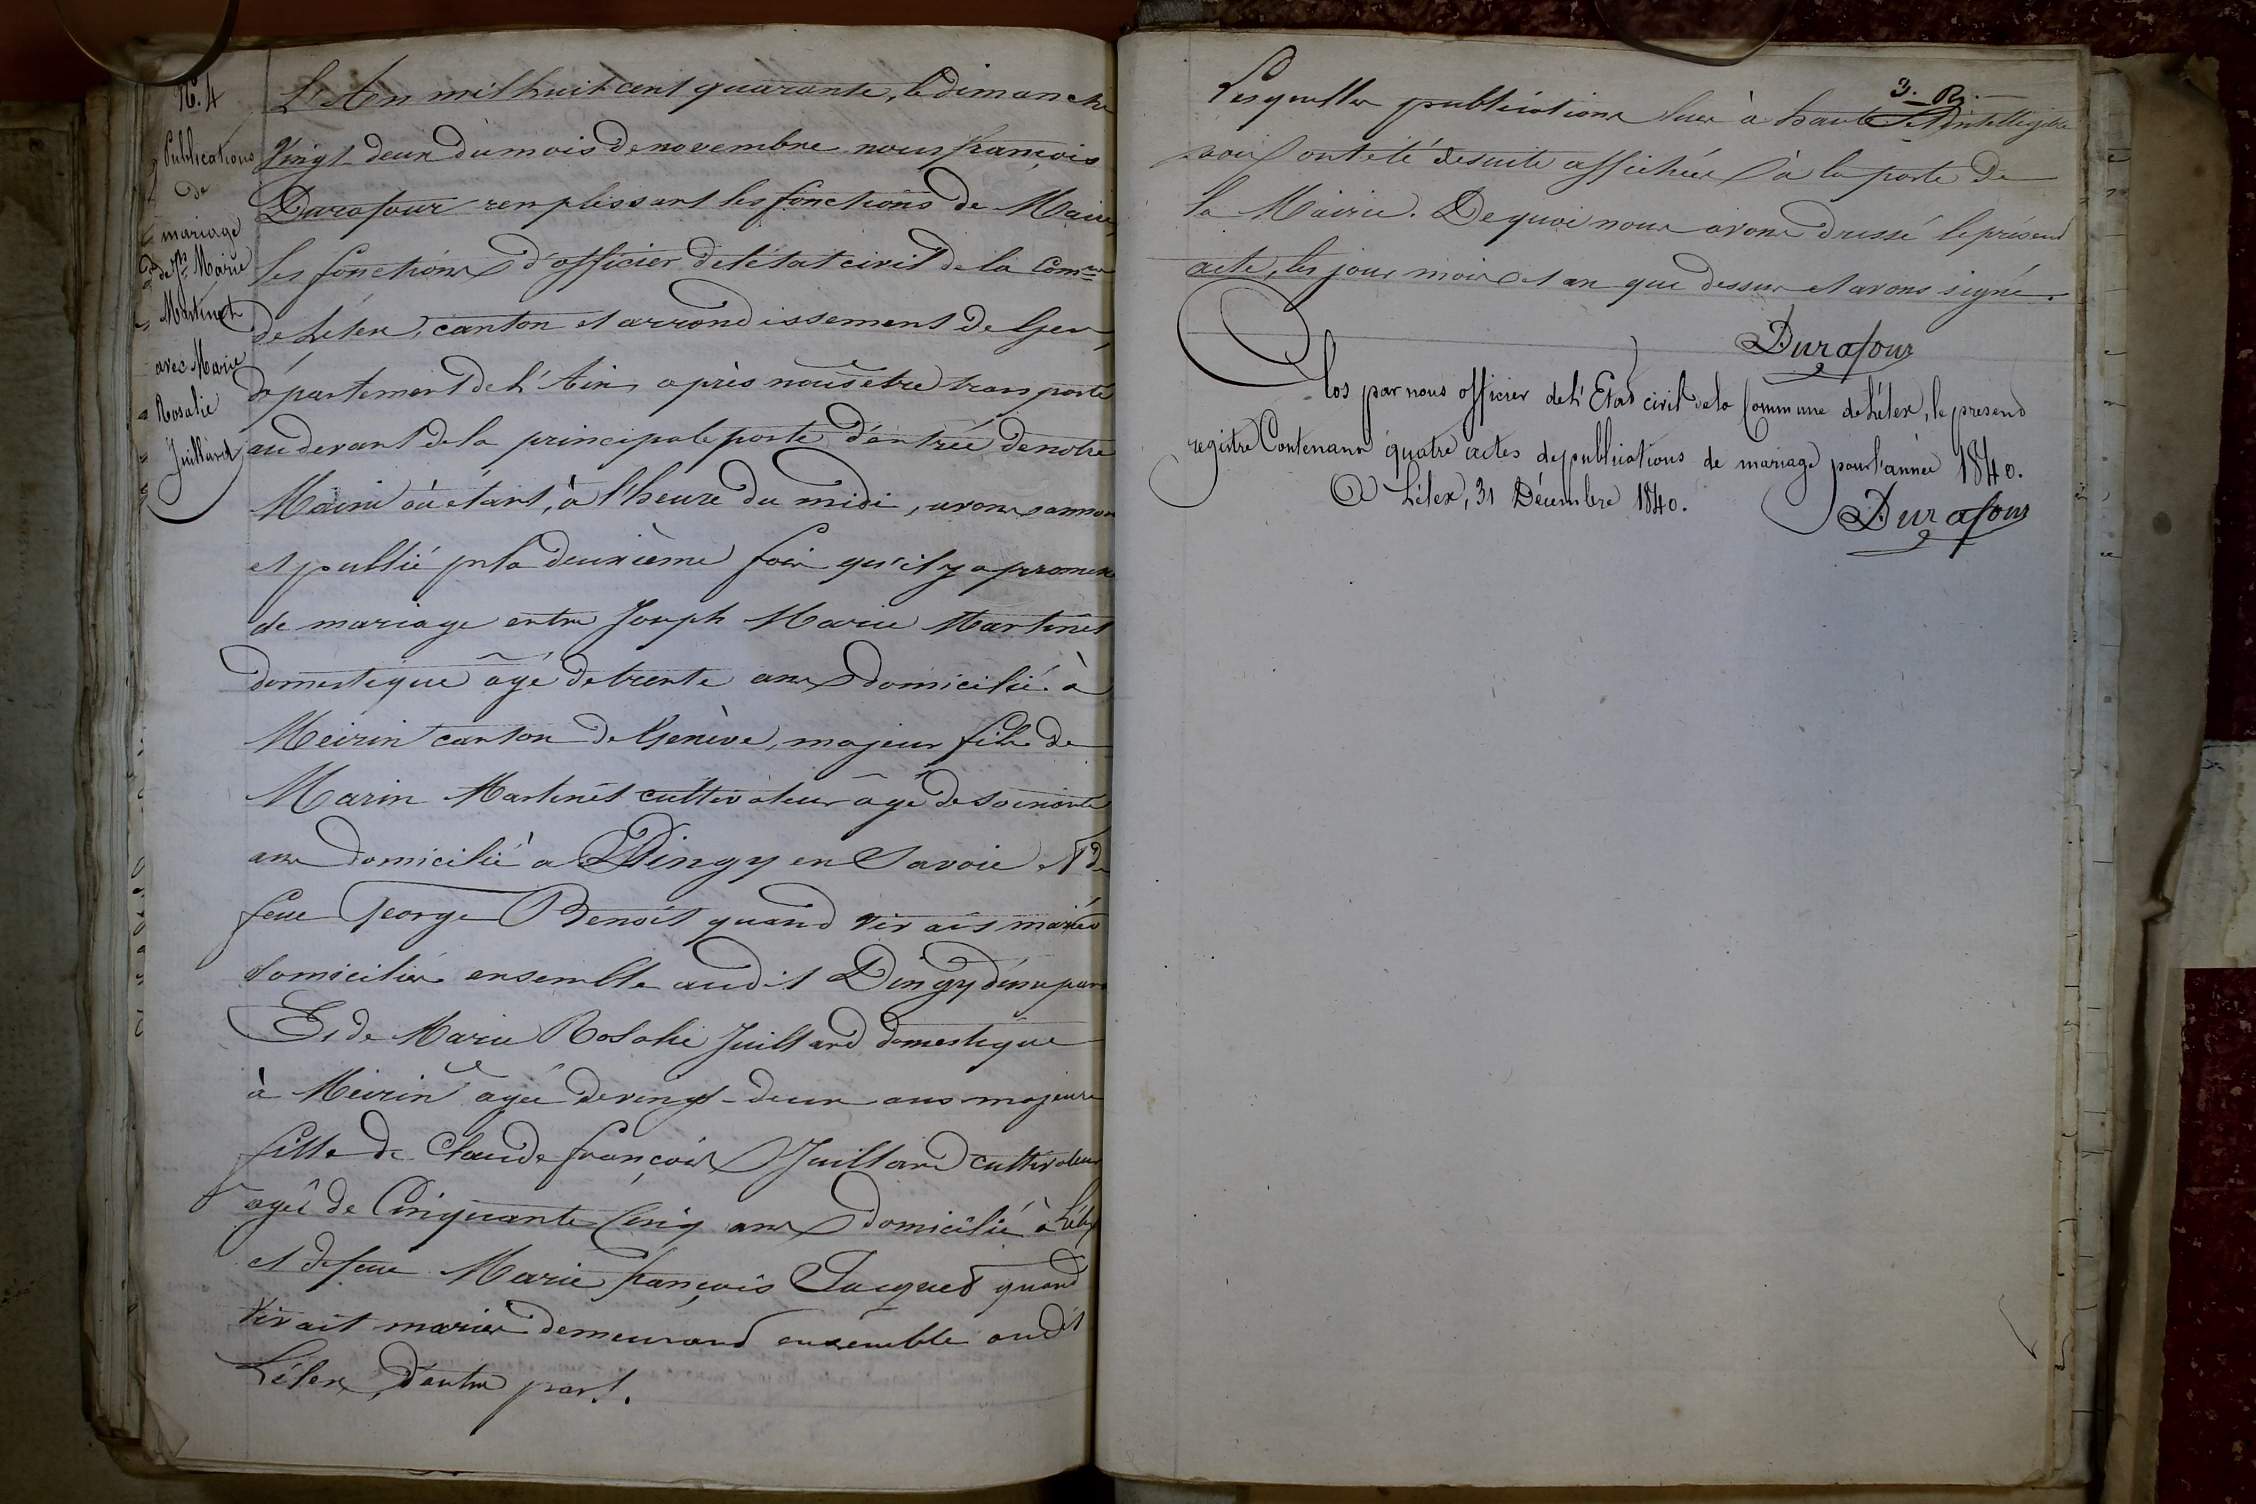 N°. 4
2 Publications
de
mariage
de Jph Marie
Martinet
avec Marie
Rosalie
Juillard
L'An mil huit cent quarante, le dimanche
vingt deux du mois de novembre nous françois
Durafour remplissant les fonctions de Maire,
les fonctions d'officier de l'état civil de la Com.ne
de Lélex, canton et arrondissement de Gex,
département de l'Ain, après nous être transporté
au devant de la principale porte d'entrée de notre
Mairie où étant, à l'heure du midi, avons annon
et publié pr la deuxième fois qu'il y a promesse
de mariage entre Joseph Marie Martinet
domestique âgé de trente ans domicilié à
Meirin canton de Genève, majeur fils de
Marin Martinet cultivateur âgé de soixante
ans domicilié a Dingy en Savoie et de
feue George Benoit quand vivait mariés
domiciliés ensemble audit Dingy d'une part
Et de Marie Rosalie Juillard domestique
à Meirin âgée de vingt-deux ans majeure
fille de Claude françois Juillard cultivateur
agé de Cinquante Cinq ans domicilié à Lélex
et de feue Marie françois Jacquet quand
vivait mariés demeurand ensemble audit
Lélex, d'autre part.
3. R.
Lesquelles publications lues à haute et intelligible
voix ont été desuite affichées à la porte de
la Mairie. De quoi nous avons dressé le présent
acte, les jour mois et an que dessus et avons signé.
Durafour
Clos par nous officier de l'Etat civil de la Commune de Lélex, le present
registre Contenant quatre actes de publications de mariage pour l'année 1840.
A Lélex, 31 Décembre 1840.
Durafour